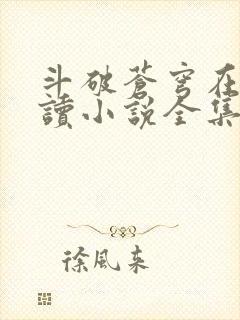 斗破蒼穹在
讀小說全集
徐風來